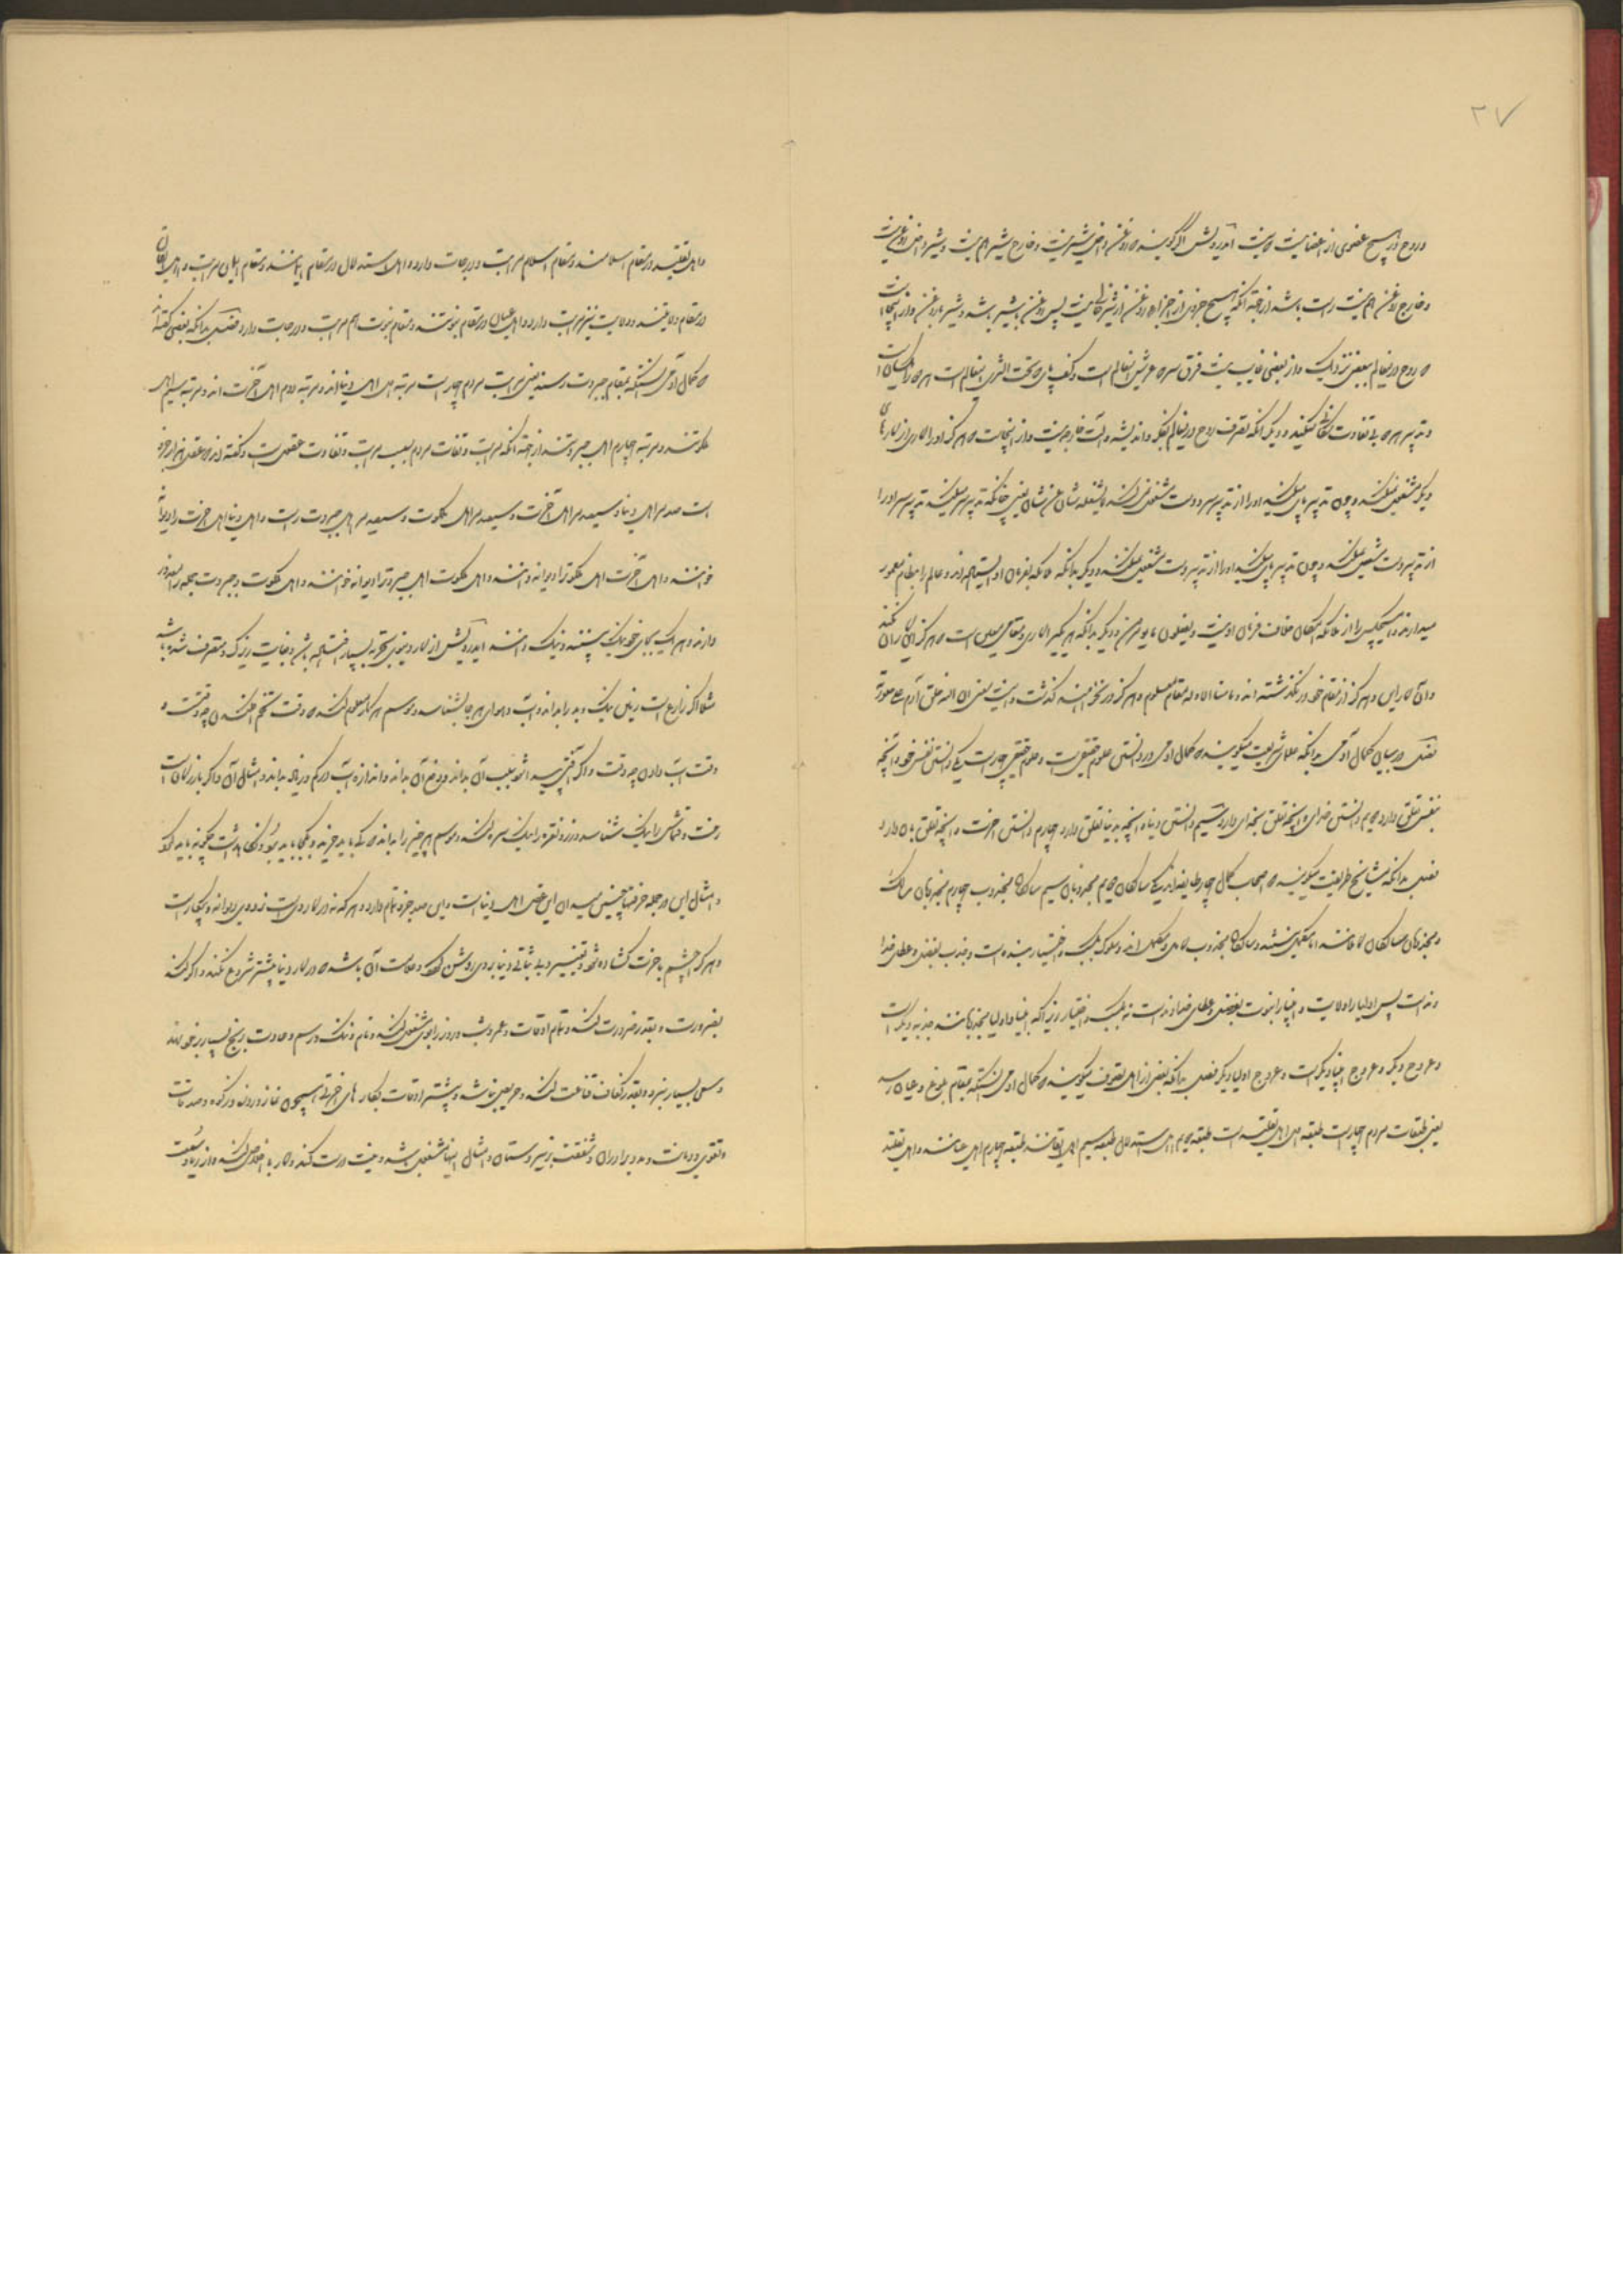 ۳۷
و روح در هیچ عضوی از اعضا نیست که نیست ای درویش اگر گویند که روغن داخل شیر نیست و خارج شیر هم نیست و شیر داخل روغن نیست
و خارج روغن هم نیست راست باشد از جهت آنکه هیچ جزوی از اجزاء روغن از شیر خالی نیست پس روغن با شیر باشد و شیر با روغن و از اینجاست
که روح در عالم ببعضی نزدیک و از بعضی غایب نیست فرق سر که عرش عالم است و کف پای که تحت الثری عالم است هر دو را یکسانست
و تدبیر هر دو بی تفاوت میکند و دیگر آنکه تصرف روح در عالم بفکر و اندیشه و آلت خارجی نیست و از اینجاست که هرگز او را کاری از کارهای
دیگر مشغول نکند و چون تدبیر پای میکند او را از تدبیر سر و دست مشغول نکند لا یشغله شأن عن شأن یعنی چنانکه تدبیر سر میکند تدبیر سر او را
از تدبیر دست مشغول نکند و چون تدبیر پای میکند او را از تدبیر دست مشغول نکند و دیگر بدانکه ملائکه بفرمان او ایستاده اند و عالم را بنظام معمور
میدارند و هیچکس را از ملائکه امکان خلاف فرمان او نیست و یفعلون ما یؤمرون و دیگر بدانکه هر یکی را کاری و مقامی معلوم است که هرگز این کار آن نکند
و آن کار این و هرگز از مقام خود در نگذشته اند و ما منا الا و له مقام معلوم و هرگز در نخواهند گذشت و اینست معنی ان الله خلق آدم علی صورته
فصل در بیان کمال آدمی بدانکه علمای شریعت میگویند که کمال آدمی در دانستن علوم حقیقی است و علوم حقیقی چهار است یکی دانستن نفس خود و آنچه
بنفس تعلق دارد دوم دانستن خدای و آنچه تعلق بخدای دارد سیم دانستن دنیا و آنچه بدنیا تعلق دارد چهارم دانستن آخرت و آنچه تعلق بآن دارد
فصل بدانکه مشایخ طریقت میگویند که اصحاب کمال چهار طایفه اند یکی سالکان دوم مجذوبان سیم سالکان مجذوب چهارم مجذوبان سالک
و مجذوبان و سالکان کاملند اما مکمل نیستند و سالکان مجذوب کامل و مکمل اند و سلوک بکسب و اختیار بنده است و جذب بفضل و عطای خدا
وند است پس اولیا را ولایت و انبیا را نبوت بفضل و عطای خداوند است نه بکسب و اختیار زیرا که انبیا و اولیا مجذوبانند جذبه دیگر است
و عروج دیگر و عروج انبیا دیگر است و عروج اولیا دیگر فصل بدانکه بعضی از اهل تصوف میگویند که کمال آدمی آنستکه بمقام بلوغ و عیان رسد
یعنی طبقات مردم چهار است طبقه اول اهل تقلیدست طبقه دوم اهل استدلال طبقه سیم اهل ایقانند طبقه چهارم اهل عیانند و اهل تقلید
و اهل تقلید در مقام اسلامند و مقام اسلام مراتب و درجات دارد و اهل استدلال در مقام ایمانند و مقام ایمان مراتب و اهل ایقان
در مقام ولایتند و ولایت نیز مراتب دارد و اهل عیان در مقام نبوتند و مقام نبوت هم مراتب و درجات دارد فصل بدانکه بعضی گفته اند
که کمال آدمی آنستکه بمقام جبروت رسد یعنی مراتب مردم چهار است مرتبه اول اهل دنیا اند و مرتبه دوم اهل آخرت اند و مرتبه سیم اهل
ملکوتند و مرتبه چهارم اهل جبروتند از جهت آنکه مراتب و تفاوت مردم بسبب مراتب و تفاوت عقول است و گفته اند که عقل هزار جزو
است صد مر اهل دنیا و سیصد مر اهل آخرت و سیصد مر اهل ملکوت و سیصد مر اهل جبروت راست و اهل دنیا اهل آخرت را دیوانه
خوانند و اهل آخرت اهل ملکوت را دیوانه دانند و اهل ملکوت اهل جبروت را دیوانه خوانند و اهل ملکوت و جبروت جمله را معذور
دارند و هر یک را بجای خود نیک بینند و نیک دانند ای درویش از کار دنیا بتجربه بسیار باشد
مثلا اگر زارع است زمین نیک و بد را بداند و آب و هوای هر جا بشناسد و موسم هر کار معلوم کند که وقت تخم افکندن چه وقتست و
وقت آب دادن چه وقت و اگر آفتی رسد سبب آن بداند و دفع آن بداند و اندازه آب در کم و زیاد بداند و امثال آن و اگر بازرگان است
رخت و قماش را نیک شناسد و زر و نقره را نیک سره کند و موسم هر چیز را بداند که کی باید خرید و کجا باید برد و نگاهداشت چگونه باید کرد
و امثال این در جمله حرفتها چنین میدان این عقل اهل دنیاست و این صد جزو تمام دارد و هر که نه در کار وی است نزد وی دیوانه و بیکار است
و هر که را چشم بآخرت گشاده شود و تغییر و بی ثباتی دنیا بر وی روشن گردد و علامت آن باشد که در کار دنیا بیشتر شروع نکند و اگر کند
بضرورت و بقدر ضرورت کند و تمام اوقات و عمر و شب و روز را بوی مشغول نکند و نام و ننگ و رسم و عادت و رنج بسیار بر خود ننهد
و سعی بسیار نبرد و بقدر کفاف قناعت کند و حریص نباشد و بیشتر اوقات بکارهای اخروی همچون نماز و روزه و زکوة و صدقات
و تقوی و دیانت و مدد برادران و شفقت بر زیر دستان و امثال اینها مشغول باشد و نیت درست کند و کار با اخلاص کند و از ریا و سمعت